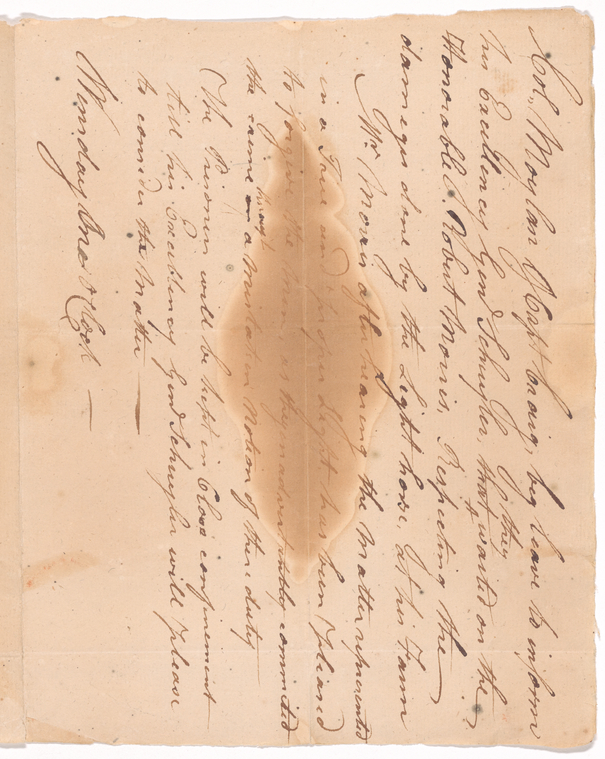 Col. Moylan & Capt Craig, beg leave to inform
his Excellency Genl Schuyler, that they waited on the
Honorable Robert Morris, Respecting the
damiegs done by the Light horse, at his Farm
Mr. Morris after hearing the Matter represented
in a True and proper Light has been Pleased
to forgive the men, as they inadvertantly committed
the same through a Mistaken Notion of there duty
The Prisoners will be kept in Close confinement
till his Excellency Genl Schuyler will please
to consider the Matter —
Wensday One O'Clock —